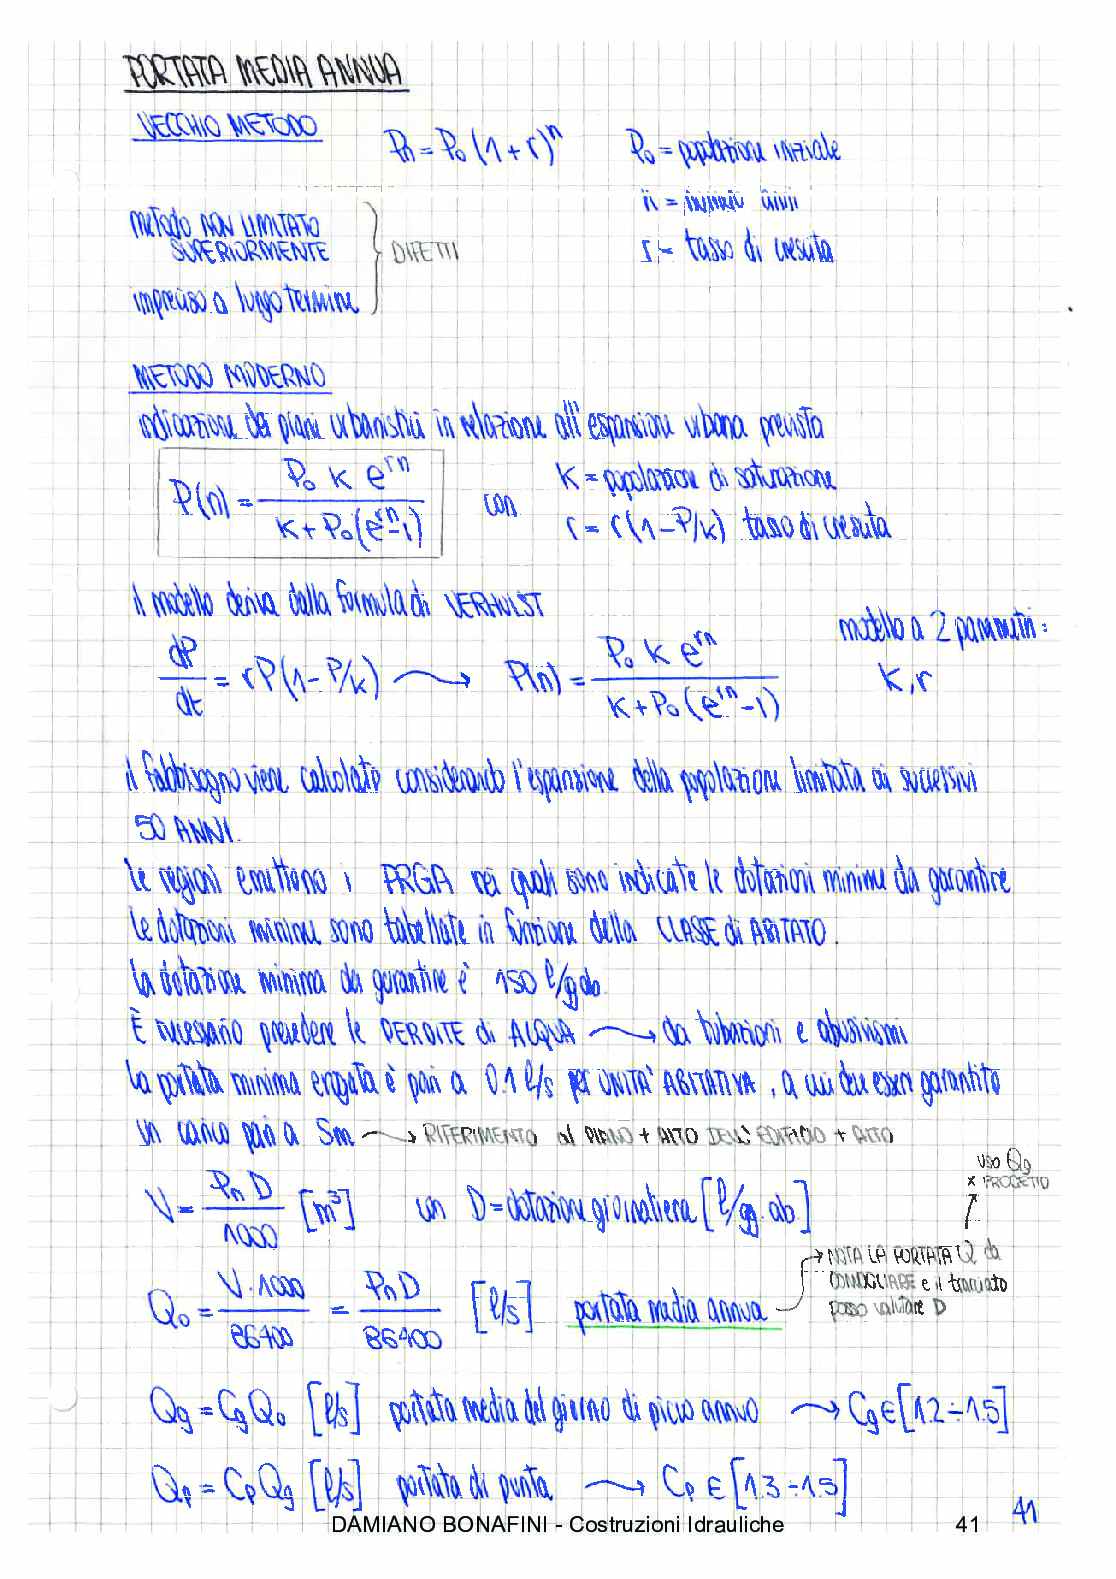 PORTATA MEDIA ANNUA
VECCHIO METODO
Pn = P₀ (1 + r)ⁿ
P₀ = popolazione iniziale
n = numero anni
r = tasso di crescita
metodo NON LIMITATO
SUPERIORMENTE
impreciso a lungo termine
DIFETTI
METODO MODERNO
indicazione dei piani urbanistici in relazione all'espansione urbana prevista
P(n) = P₀ K e^rn / K + P₀(e^rn - 1)
con
K = popolazione di saturazione
r = r(1 - P/K) tasso di crescita
il modello deriva dalla formula di VERHULST
dP/dt = rP(1 - P/K) → P(n) = P₀ K e^rn / K + P₀(e^rn - 1)
modello a 2 parametri:
K, r
il fabbisogno viene calcolato considerando l'espansione della popolazione limitata ai successivi
50 ANNI.
Le regioni emettono i PRGA nei quali sono indicate le dotazioni minime da garantire
Le dotazioni minime sono tabellate in funzione della CLASSE di ABITATO.
La dotazione minima da garantire è 150 l/g ab
È necessario prevedere le PERDITE di ACQUA → da tubazioni e abusivismi
La portata minima erogata è pari a 0.1 l/s per UNITA' ABITATIVA, a cui deve essere garantito
un carico pari a 5m → RIFERIMENTO al PIANO + ALTO DELL'EDIFICIO + ALTO
V = Pn D / 1000 [m³] con D = dotazione giornaliera [l/gg. ab]
USO Qg
x PROGETTO
Q₀ = V · 1000 / 86400 = Pn D / 86400 [l/s] portata media annua
→ NOTA LA PORTATA Q da
CONVOGLIARE e il tracciato
posso valutare D
Qg = Cg Q₀ [l/s] portata media del giorno di picco annuo → Cg ∈ [1.2 ÷ 1.5]
Qp = Cp Qg [l/s] portata di punta → Cp ∈ [1.3 ÷ 1.5]
41
DAMIANO BONAFINI - Costruzioni Idrauliche 41